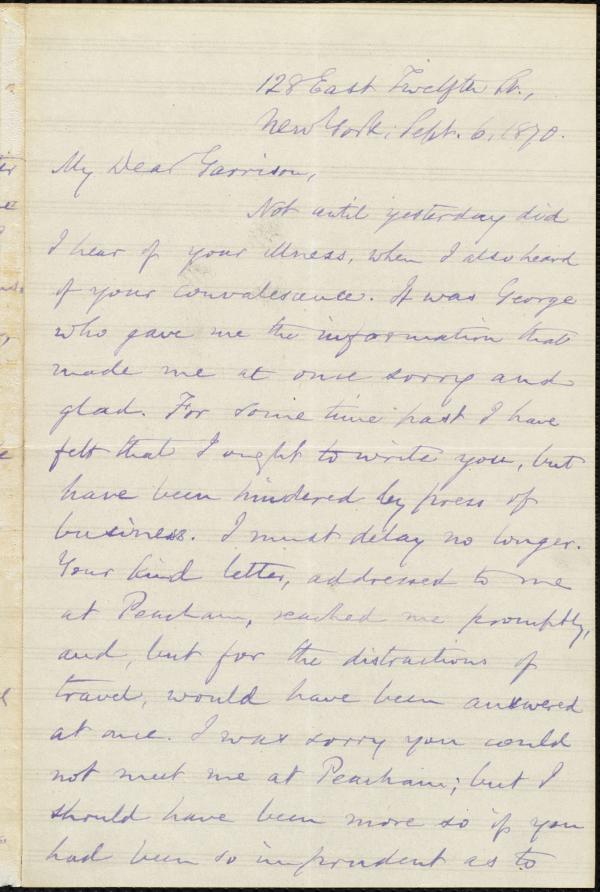 128 East Twelfth St.,
New York, Sept. 6, 1870.
My Dear Garrison,
Not until yesterday did
I hear of your illness, when I also heard
of your convalescence. It was George
who gave me the information that
made me at once sorry and
glad. For some time past I have
felt that I ought to write you, but
have been hindered by press of
business. I must delay no longer.
Your kind letter, addressed to me
at Peacham, reached me promptly,
and, but for the distractions of
travel, would have been answered
at once. I was sorry you could
not meet me at Peacham; but I
should have been more so if you
had been so imprudent as to